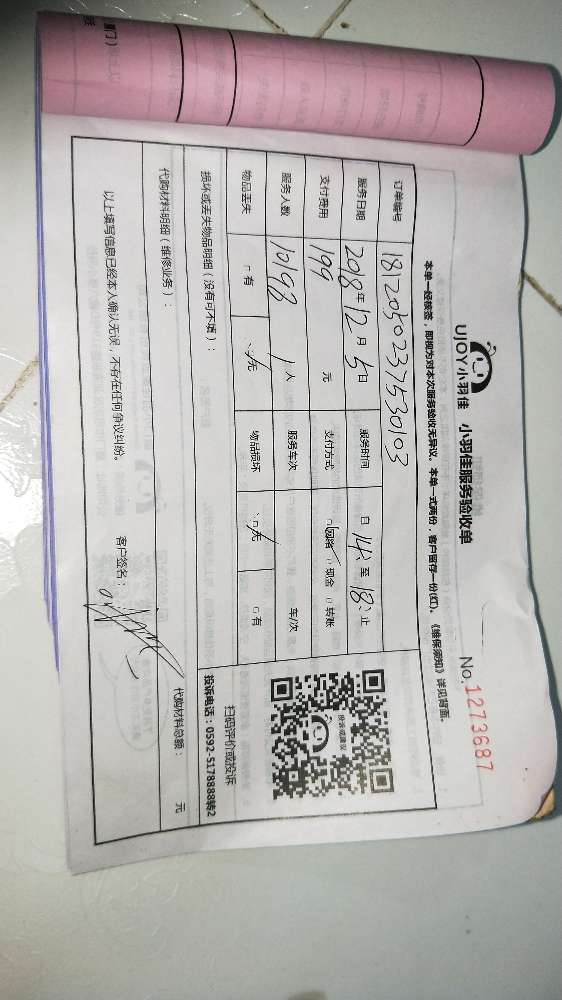 UJOY小羽佳 小羽佳服务验收单
No.1273687
本单一经核签，即视为对本次服务验收无异议。本单一式两份，客户留存一份(红)。《维保须知》详见背面。
订单编号 1812050237530103
服务日期 2018年12月5日 服务时间 自14:至18:止
支付费用 199 元 支付方式 网络 现金 转账
服务人数 1人 服务车次 车/次
物品丢失 有 无 物品损坏 无 有
投诉或建议
扫码评价或投诉
投诉电话：0592-5178888转2
损坏或丢失物品明细（没有可不填）：
代购材料明细（维修业务）： 代购材料总额： 元
以上填写信息已经本人确认无误，不存在任何争议纠纷。 客户签名：